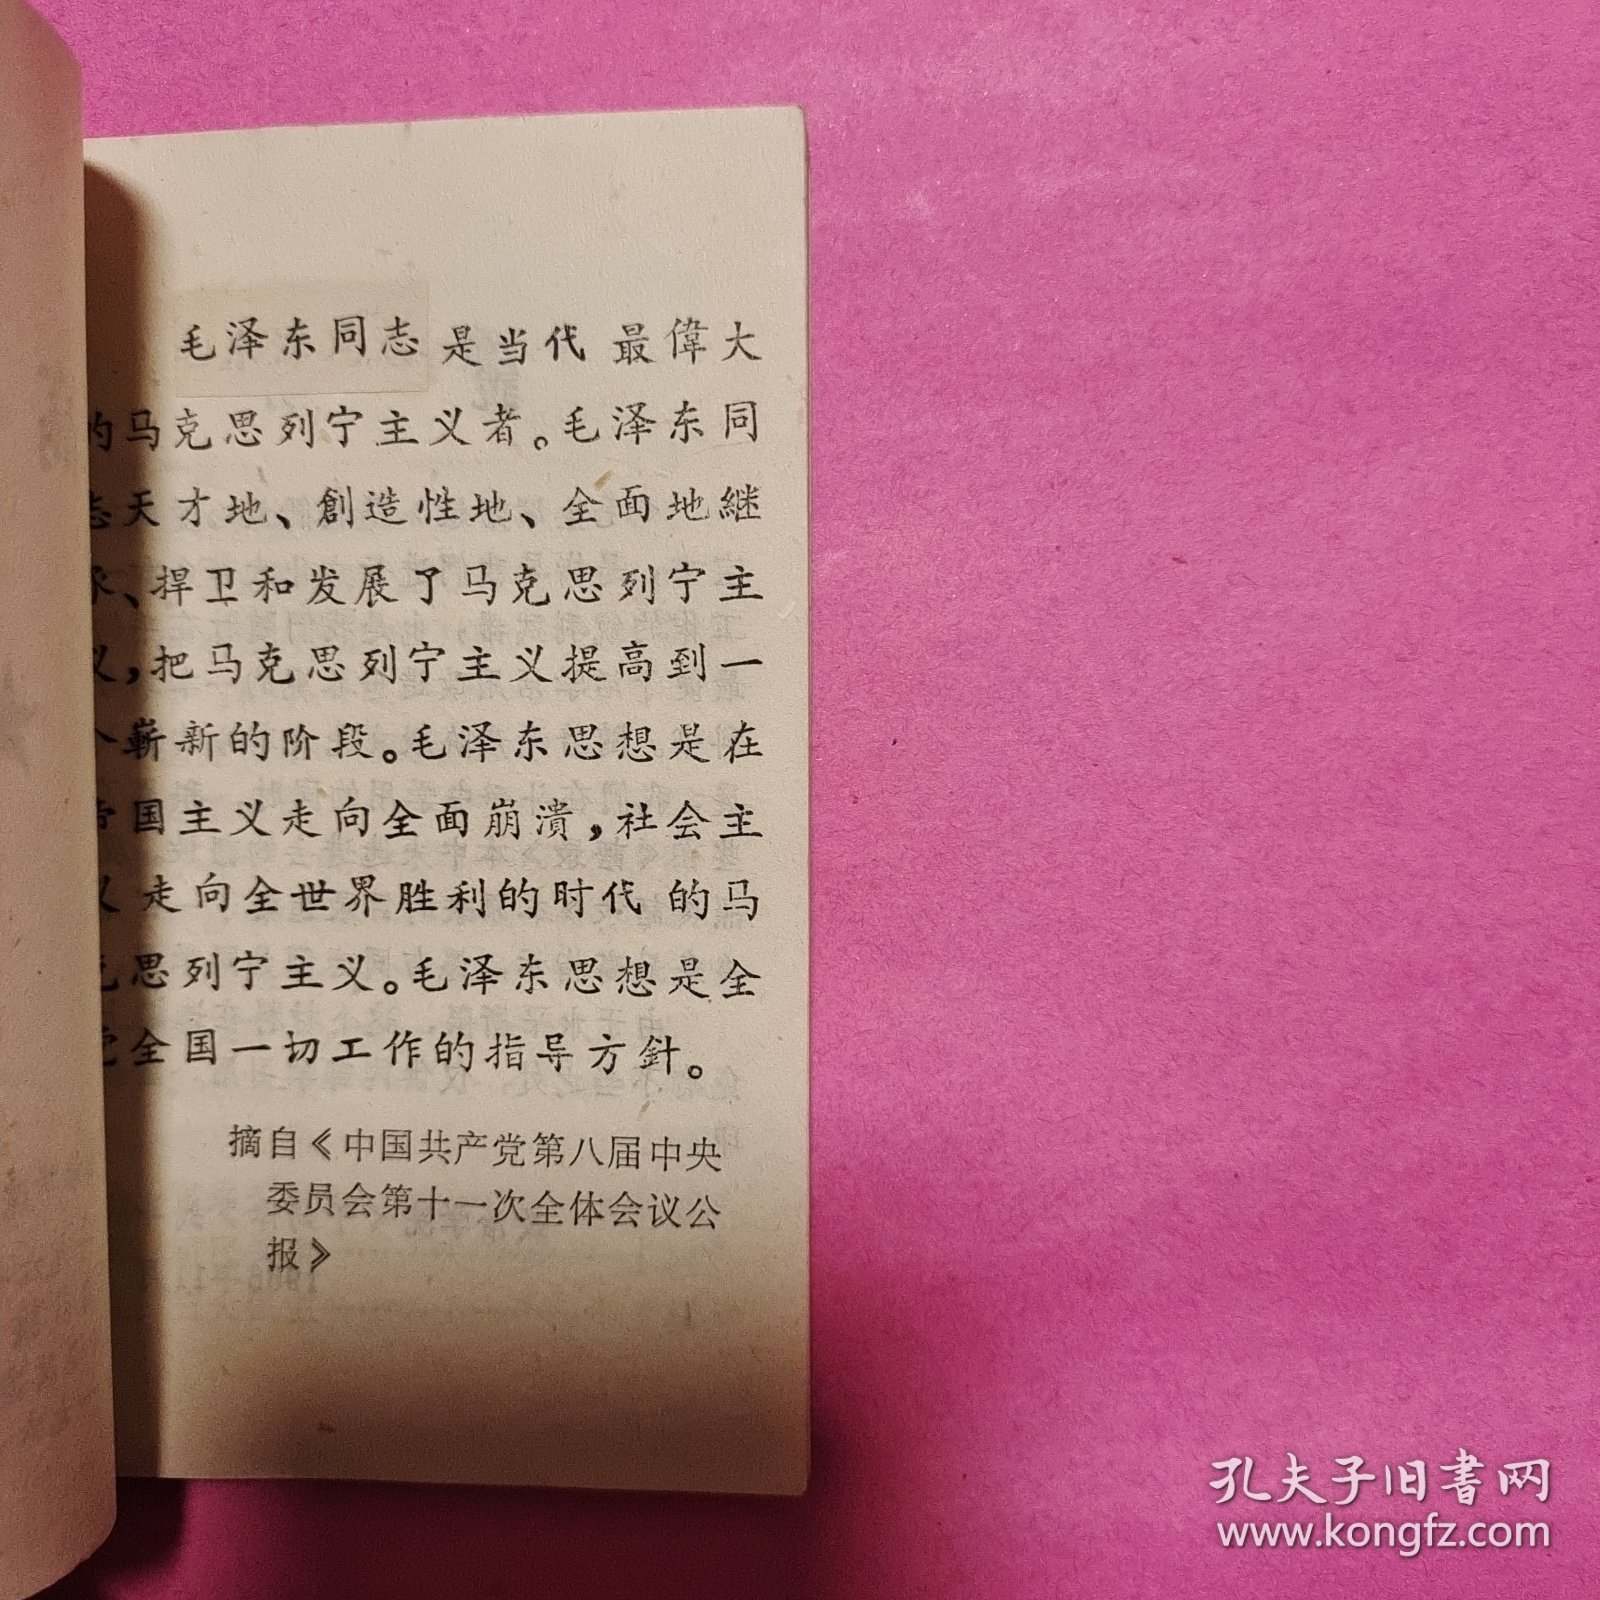 毛泽东同志是当代最偉大
的马克思列宁主义者。毛泽东同
志天才地、創造性地、全面地継
承、捍卫和发展了马克思列宁主
义，把马克思列宁主义提高到一
个崭新的阶段。毛泽东思想是在
帝国主义走向全面崩溃，社会主
义走向全世界胜利的时代的马
克思列宁主义。毛泽东思想是全
党全国一切工作的指导方針。
摘自《中国共产党第八届中央
委员会第十一次全体会议公
报》
孔夫子旧书网
www.kongfz.com